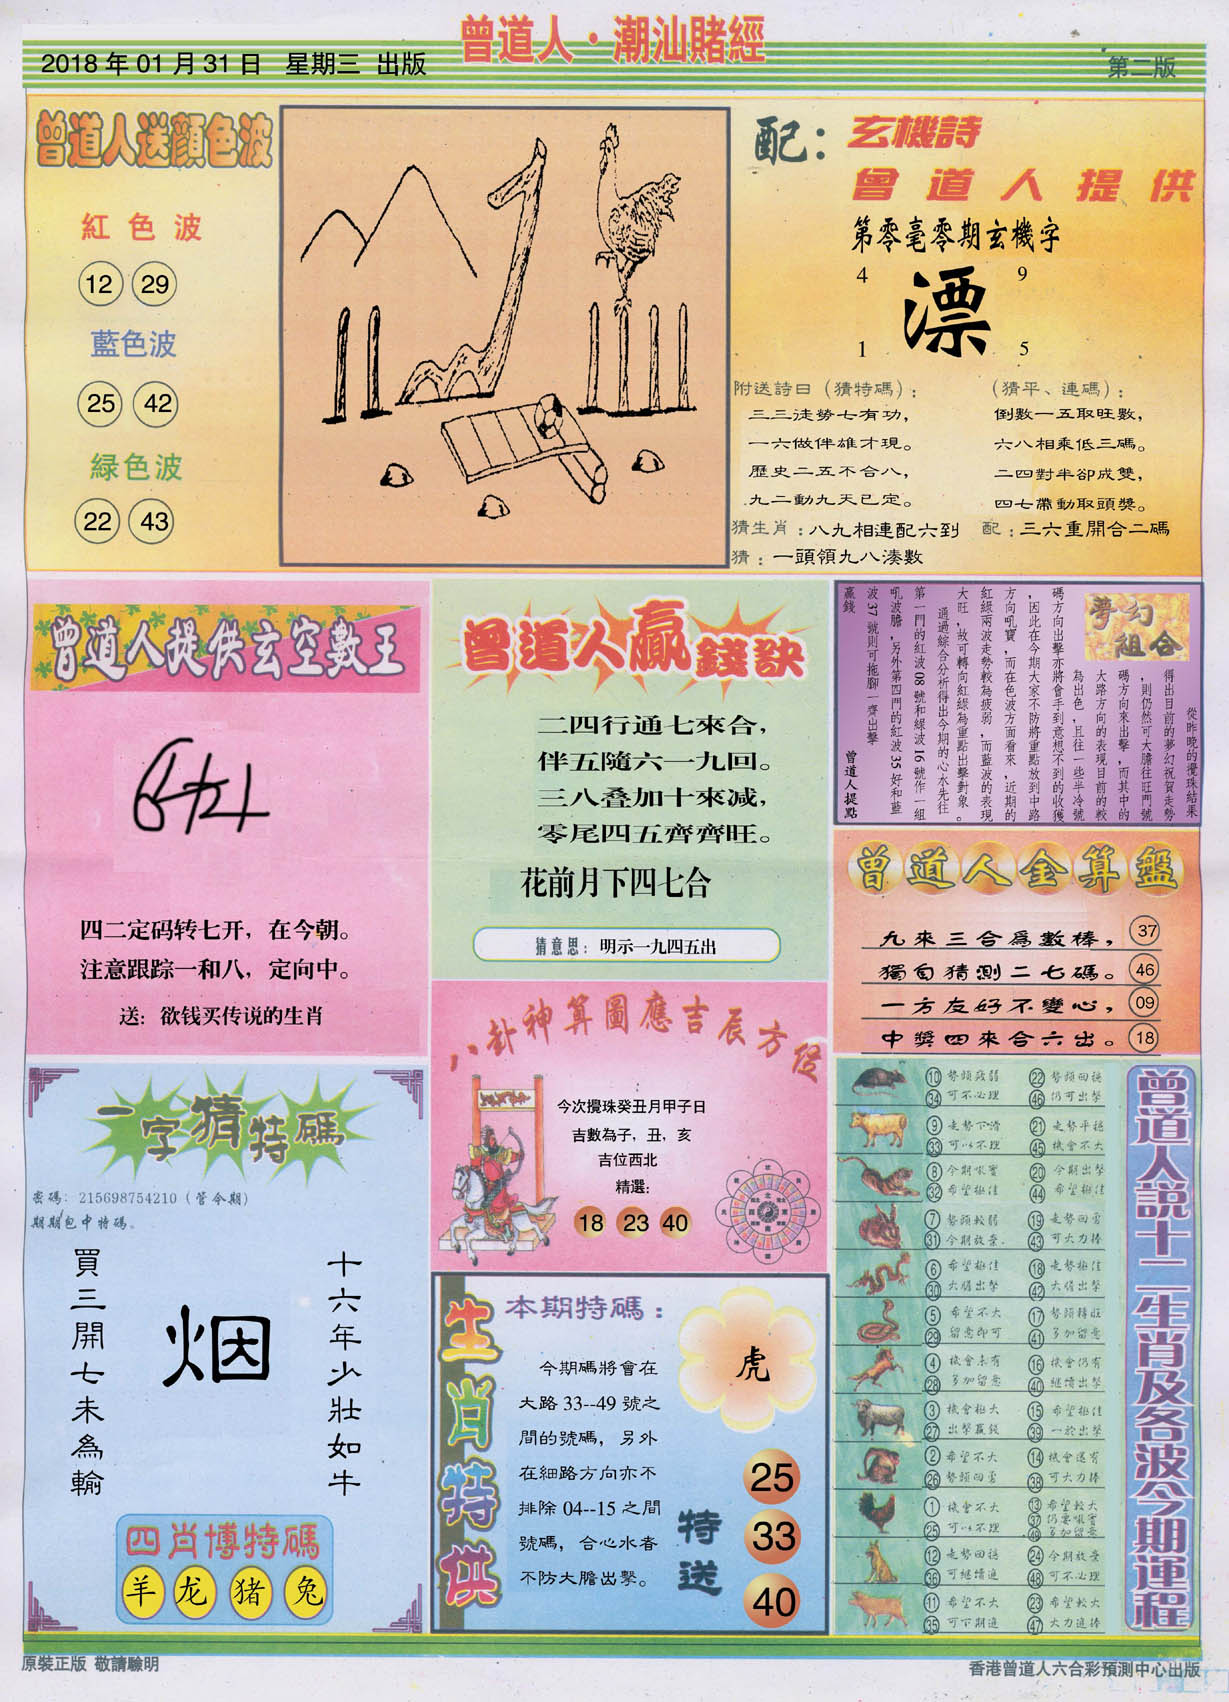 曾道人·潮汕賭經
2018年01月31日 星期三 出版
第二版
曾道人送顏色波
紅色波
12 29
藍色波
25 42
緑色波
22 43
配：玄機詩
曾道人提供
第零毫零期玄機字
4 9
漂
1 5
附送詩曰（猜特碼）：
三三徒勞七有功，
一六做伴雄才現。
歷史二五不合八，
九二動九天已定。
（猜平、連碼）：
倒數一五取旺數，
六八相乘低三碼。
二四對半卻成雙，
四七帶動取頭獎。
猜生肖：八九相連配六到
配：三六重開合二碼
猜：一頭領九八湊數
曾道人提供玄空數王
四二定码转七开，在今朝。
注意跟踪一和八，定向中。
送：欲钱买传说的生肖
曾道人贏錢訣
二四行通七來合，
伴五隨六一九回。
三八叠加十來减，
零尾四五齊齊旺。
花前月下四七合
猜意思：明示一九四五出
夢幻組合
從昨晚的攪珠結果
得出目前的夢幻祝賀走勢
，則仍然可大膽往旺門號
碼方向來出擊，而其中的
大路方向的表現目前的較
為出色，且往一些半冷號
碼方向出擊亦將會手到意想不到的收獲
，因此在今期大家不防將重點放到中路
方向吼寶，而在色波方面看來，近期的
紅綠兩波走勢較為疲弱，而藍波的表現
大旺，故可轉向紅綠為重點出擊對象。
通過綜合分析得出今期的心水先往
第一門的紅波08號和緑波16號作一組
吼波膽，另外第四門的紅波35好和藍
波37號則可拖腳一齊出擊
贏錢
曾道人提點
曾道人金算盤
九來三合爲數棒， 37
獨自猜測二七碼。 46
一方友好不變心， 09
中獎四來合六出。 18
八卦神算圖應吉辰方位
今次攪珠癸丑月甲子日
吉數為子，丑，亥
吉位西北
精選：
18 23 40
一字猜特碼
密碼：215698754210（管令期）
期期包中特碼。
買三開七未為輸
烟
十六年少壯如牛
四肖博特碼
羊 龙 猪 兔
生肖特供
本期特碼：
今期碼將會在
大路33--49號之
間的號碼，另外
在細路方向亦不
排除04--15之間
號碼，合心水者
不防大膽出擊。
虎
特送
25
33
40
曾道人説十二生肖及各波今期運程
10 34 勢頭疲弱 可不必理
22 46 勢頭回穩 仍可出擊
9 33 走勢下滑 可以不理
21 45 走勢平穩 機會不大
8 32 今期吼寶 希望極佳
20 44 今期出擊 希望極佳
7 31 勢頭較弱 今期放棄
19 43 走勢回勇 可大力捧
6 30 希望極佳 大膽出擊
18 42 走勢極佳 大膽出擊
5 29 希望不大 留意即可
17 41 勢頭轉旺 多加留意
4 28 機會未有 多加留意
16 40 機會仍有 繼續出擊
3 27 機會極大 出擊贏錢
15 39 希望極佳 一於出擊
2 26 希望不大 勢頭回勇
14 38 機會還有 可大力捧
1 25 機會不大 可以不理
13 37 49 希望較大 仍要吼實 多加留意
12 36 走勢回穩 可繼續追
24 48 今期放棄 可不必理
11 35 希望不大 可下期追
23 47 希望較大 大力追捧
原裝正版 敬請驗明
香港曾道人六合彩預測中心出版